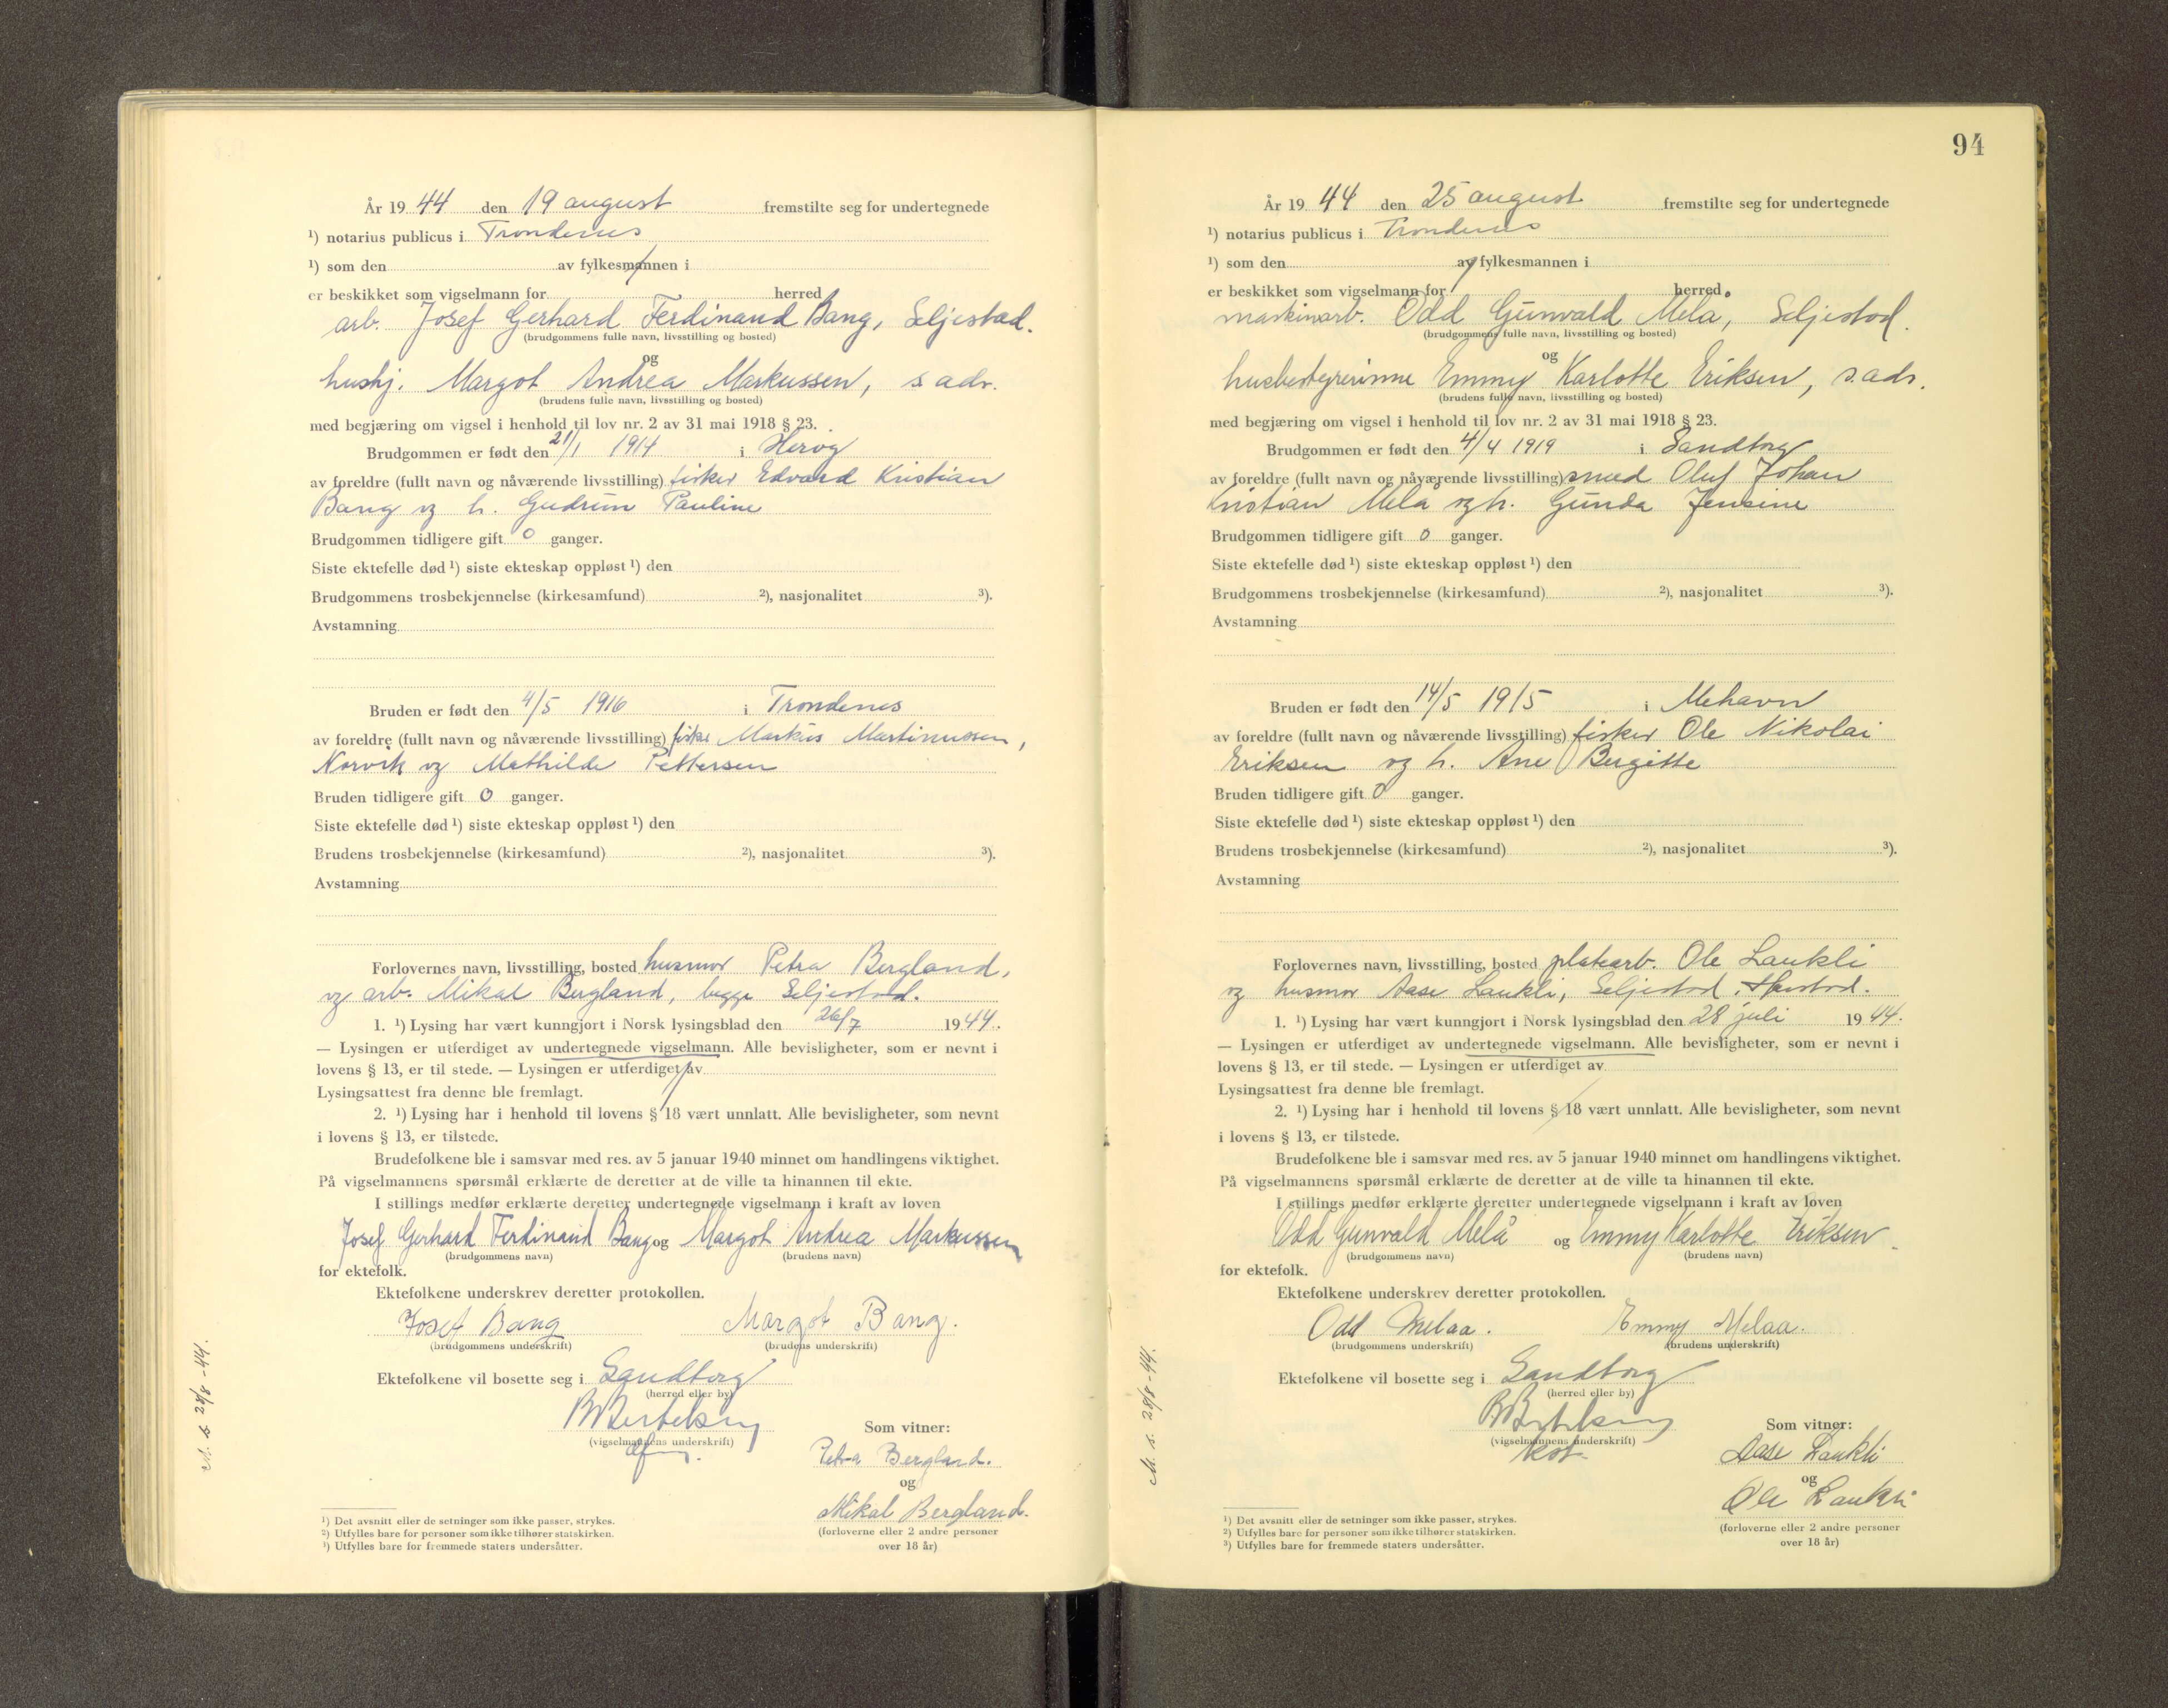 År 1944 den 19 august fremstilte seg for undertegnede
¹) notarius publicus i Trondenes
¹) som den av fylkesmannen i
er beskikket som vigselmann for herred
arb. Josef Gerhard Ferdinand Bang, Seljestad.
(brudgommens fulle navn, livsstilling og bosted)
og
hushj. Margot Andrea Markussen, s. adr.
(brudens fulle navn, livsstilling og bosted)
med begjæring om vigsel i henhold til lov nr. 2 av 31 mai 1918 § 23.
Brudgommen er født den 21/1 1914 i Herøy
av foreldre (fullt navn og nåværende livsstilling) fisker Edvard Kristian
Bang og h. Gudrun Pauline
Brudgommen tidligere gift 0 ganger.
Siste ektefelle død ¹) siste ekteskap oppløst ¹) den
Brudgommens trosbekjennelse (kirkesamfund) ²), nasjonalitet ³).
Avstamning
Bruden er født den 4/5 1916 i Trondenes
av foreldre (fullt navn og nåværende livsstilling) fisker Markus Martinussen,
Norvik og Mathilde Pettersen
Bruden tidligere gift 0 ganger.
Siste ektefelle død ¹) siste ekteskap oppløst ¹) den
Brudens trosbekjennelse (kirkesamfund) ²), nasjonalitet ³).
Avstamning
Forlovernes navn, livsstilling, bosted husmor Petra Bergland,
og arb. Mikal Bergland, begge Seljestad.
1. ¹) Lysing har vært kunngjort i Norsk lysingsblad den 26/7 1944.
— Lysingen er utferdiget av undertegnede vigselmann. Alle bevisligheter, som er nevnt i
lovens § 13, er til stede. — Lysingen er utferdiget av
Lysingsattest fra denne ble fremlagt.
2. ¹) Lysing har i henhold til lovens § 18 vært unnlatt. Alle bevisligheter, som nevnt
i lovens § 13, er tilstede.
Brudefolkene ble i samsvar med res. av 5 januar 1940 minnet om handlingens viktighet.
På vigselmannens spørsmål erklærte de deretter at de ville ta hinannen til ekte.
I stillings medfør erklærte deretter undertegnede vigselmann i kraft av loven
Josef Gerhard Ferdinand Bang og Margot Andrea Markussen
(brudgommens navn) (brudens navn)
for ektefolk.
Ektefolkene underskrev deretter protokollen.
Josef Bang Margot Bang.
(brudgommens underskrift) (brudens underskrift)
Ektefolkene vil bosette seg i Sandtorg
(herred eller by)
(vigselmannens underskrift)
Som vitner:
Petra Bergland.
og
Mikal Bergland.
(forloverne eller 2 andre personer
over 18 år)
s 28/8 - 44.
¹) Det avsnitt eller de setninger som ikke passer, strykes.
²) Utfylles bare for personer som ikke tilhører statskirken.
³) Utfylles bare for fremmede staters undersåtter.
94
År 1944 den 25 august fremstilte seg for undertegnede
¹) notarius publicus i Trondenes
¹) som den av fylkesmannen i
er beskikket som vigselmann for herred.
maskinarb. Odd Gunvald Melå, Seljestad.
(brudgommens fulle navn, livsstilling og bosted)
og
husbestyrerinne Emmy Karlotte Eriksen, s. adr.
(brudens fulle navn, livsstilling og bosted)
med begjæring om vigsel i henhold til lov nr. 2 av 31 mai 1918 § 23.
Brudgommen er født den 4/4 1919 i Sandtorg
av foreldre (fullt navn og nåværende livsstilling) smed Oluf Johan
Kristian Melå og h. Gunda Jensine
Brudgommen tidligere gift 0 ganger.
Siste ektefelle død ¹) siste ekteskap oppløst ¹) den
Brudgommens trosbekjennelse (kirkesamfund) ²), nasjonalitet ³).
Avstamning
Bruden er født den 14/5 1915 i Mehavn
av foreldre (fullt navn og nåværende livsstilling) fisker Ole Nikolai
Eriksen og h. Ane Bergitte
Bruden tidligere gift 0 ganger.
Siste ektefelle død ¹) siste ekteskap oppløst ¹) den
Brudens trosbekjennelse (kirkesamfund) ²), nasjonalitet ³).
Avstamning
Forlovernes navn, livsstilling, bosted platearb. Ole Laukli
og husmor Aase Laukli, Seljestad, Harstad.
1. ¹) Lysing har vært kunngjort i Norsk lysingsblad den 28 juli 1944.
— Lysingen er utferdiget av undertegnede vigselmann. Alle bevisligheter, som er nevnt i
lovens § 13, er til stede. — Lysingen er utferdiget av
Lysingsattest fra denne ble fremlagt.
2. ¹) Lysing har i henhold til lovens § 18 vært unnlatt. Alle bevisligheter, som nevnt
i lovens § 13, er tilstede.
Brudefolkene ble i samsvar med res. av 5 januar 1940 minnet om handlingens viktighet.
På vigselmannens spørsmål erklærte de deretter at de ville ta hinannen til ekte.
I stillings medfør erklærte deretter undertegnede vigselmann i kraft av loven
Odd Gunvald Melå og Emmy Karlotte Eriksen
(brudgommens navn) (brudens navn)
for ektefolk.
Ektefolkene underskrev deretter protokollen.
Odd Melaa. Emmy Melaa.
(brudgommens underskrift) (brudens underskrift)
Ektefolkene vil bosette seg i Sandtorg
(herred eller by)
(vigselmannens underskrift)
Som vitner:
Aase Laukli
og
Ole Laukli
(forloverne eller 2 andre personer
over 18 år)
M. s. 28/8 - 44.
¹) Det avsnitt eller de setninger som ikke passer, strykes.
²) Utfylles bare for personer som ikke tilhører statskirken.
³) Utfylles bare for fremmede staters undersåtter.